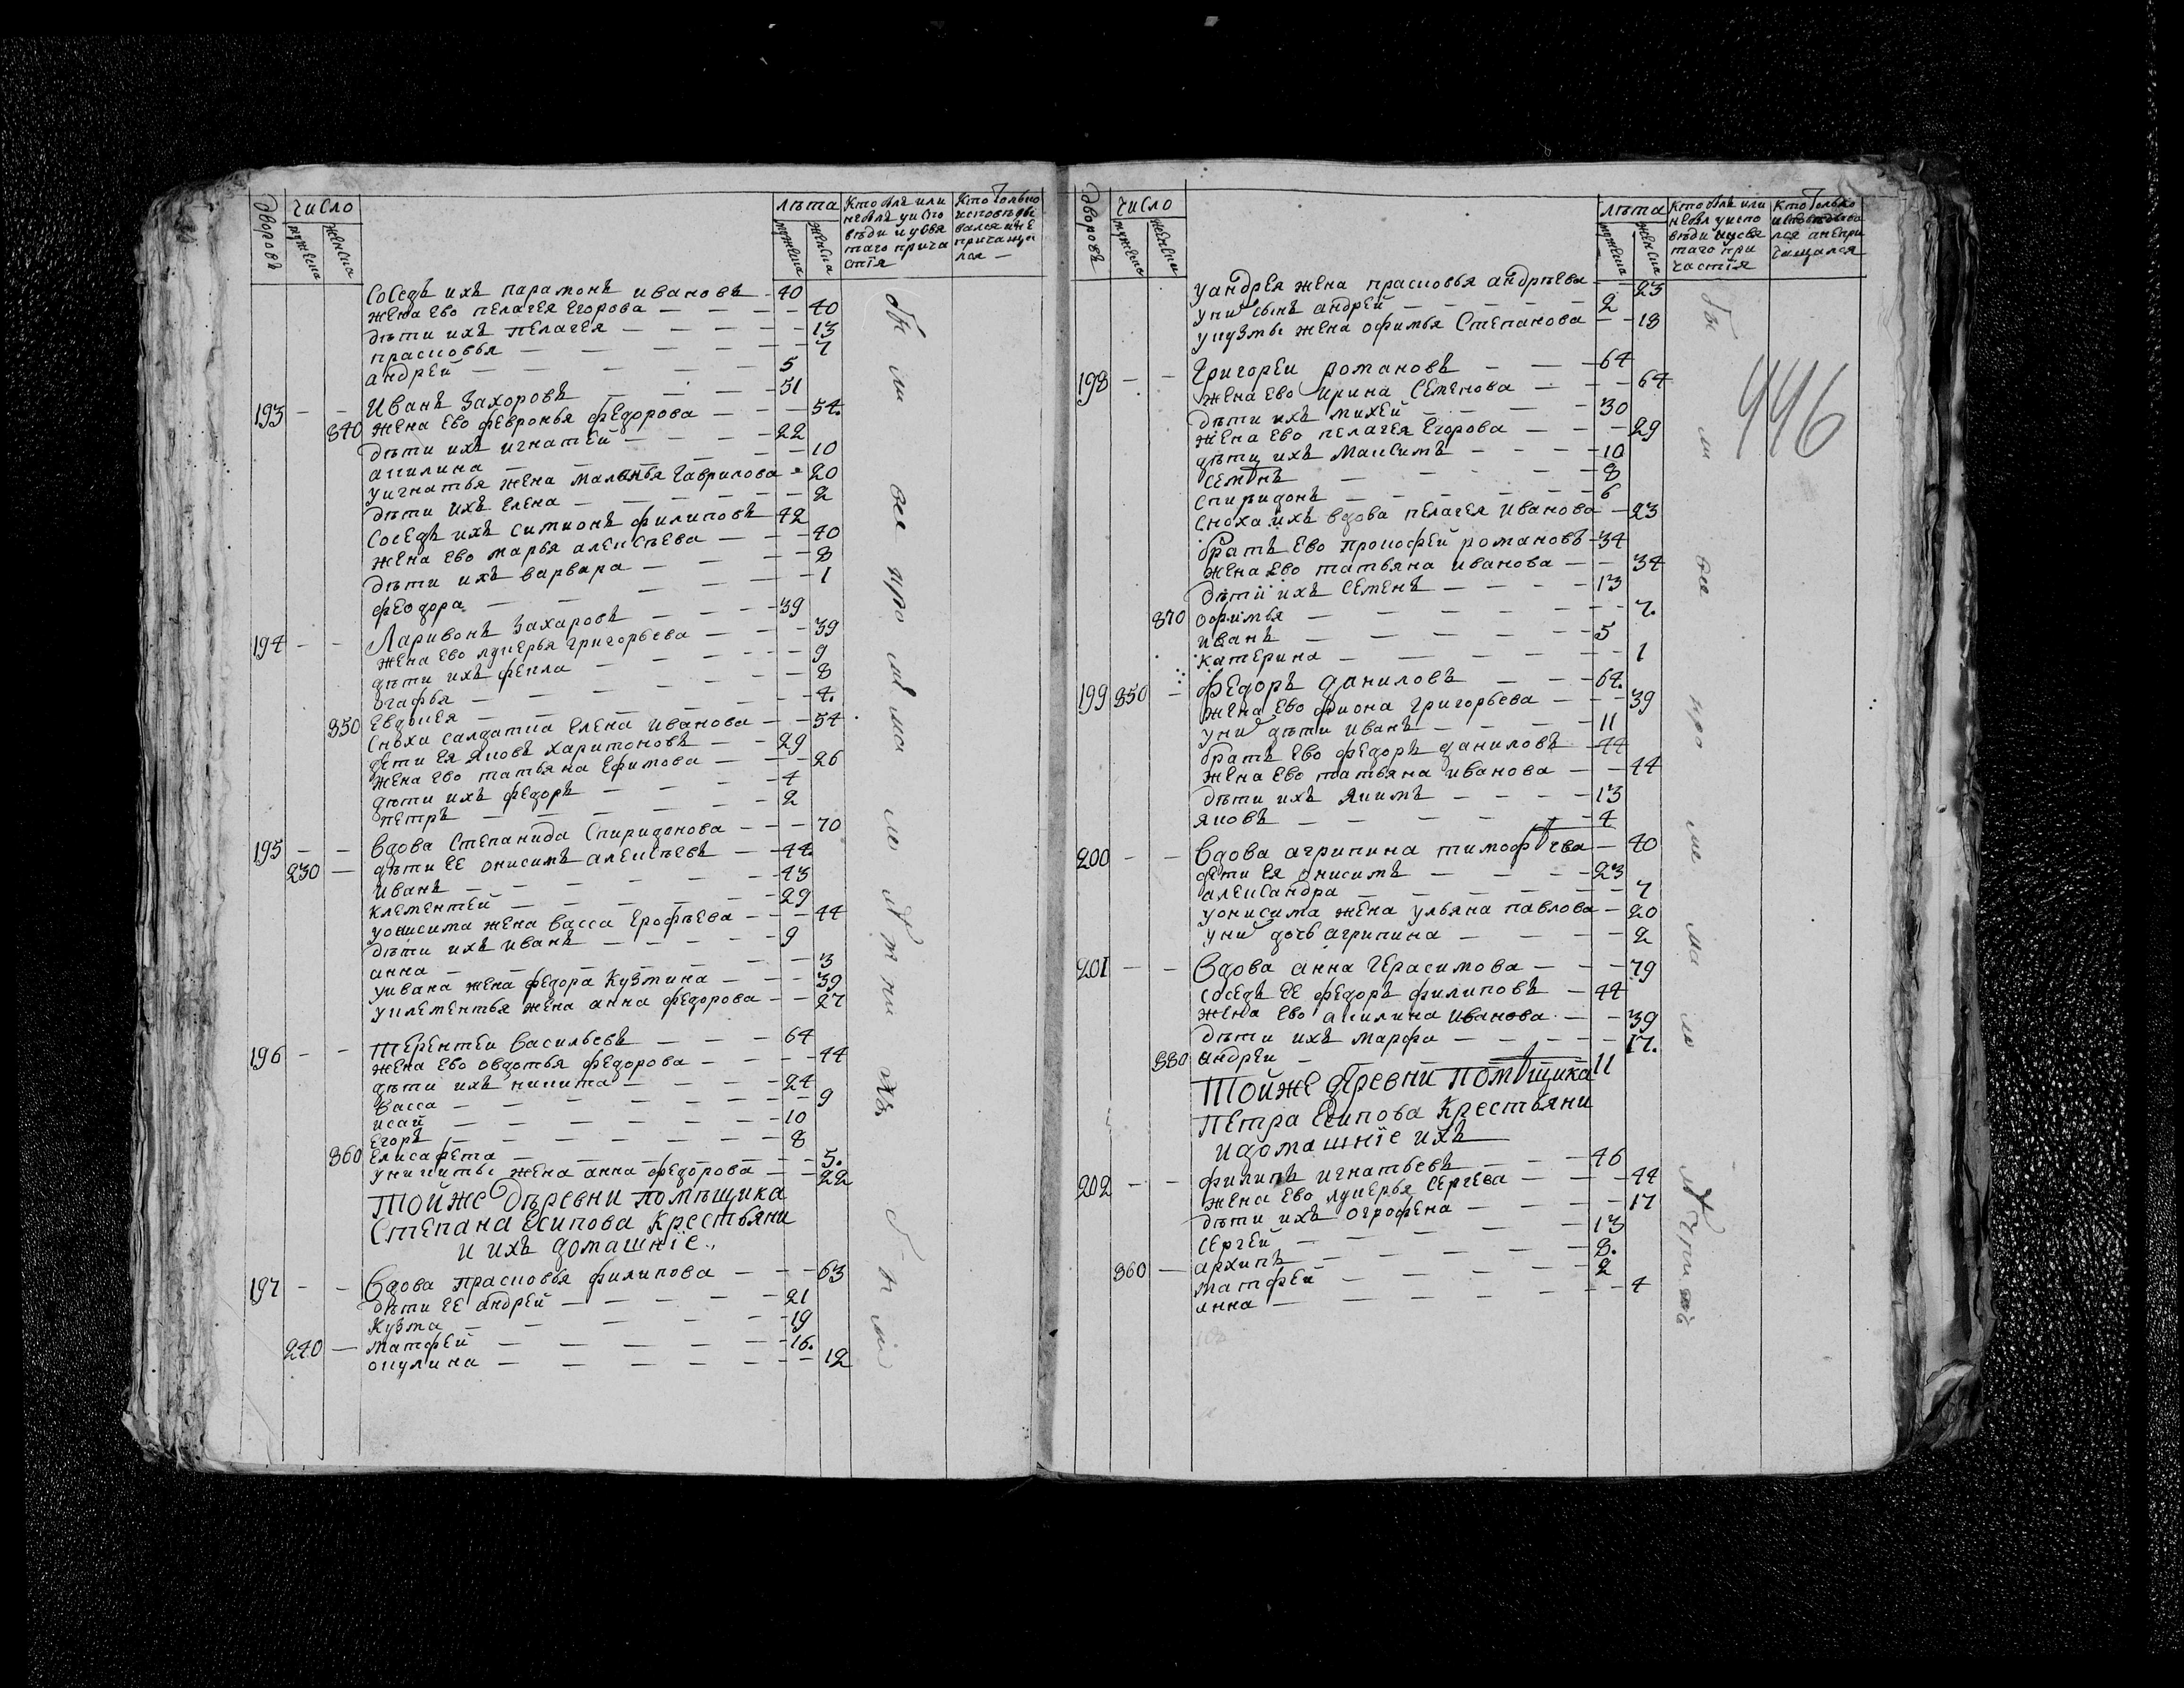 дворовъ
число
мужеска
женска
лѣта
мужеска
женска
Кто былъ или
небылъ уиспо
вѣди иусвя
таго прича
стїя
Кто только
исповѣды
вался ане
причаща
лся —
Соседъ ихъ парамонъ ивановъ — 40
жена ево пелагея Егорова — — — — 40
дѣти ихъ пелагея — — — — — 13
прасковья — — — — — — 7
андрей — — — — — — 5
193 — — Иванъ Захоровъ — — — — 51
840 жена ево февронья федорова — — — 54.
дѣти ихъ игнатей — — — — 22
акилина — — — — — — 10
уигнатья жена маланья гаврилова — 20
дѣти ихъ елена — — — — — 2
Соседъ ихъ симионъ филиповъ — 42
жена ево марья алексѣева — — — 40
дѣти ихъ варвара — — — — 8
феодора — — — — — — 1
194 — — Ларивонъ Захаровъ — — — — 39
жена ево лукерья григорьева — — — 39
дѣти ихъ фекла — — — — — 9
огафья — — — — — — 8
Евдокея — — — — — — 4.
850 Снохи салдатка елена иванова — — 54
дети ея яковъ харитоновъ — — 29
жена ево татьяна Ефимова — — — 26
дѣти ихъ федоръ — — — — 4
петръ — — — — — — 2
195 — — Вдова Степанида Спиридонова — — — 70
230 — дѣти ее онисимъ алексѣевъ — — 44.
иванъ — — — — — — 43
клементей — — — — — 29
уонисима жена васса Ерофѣева — — — 44
дѣти ихъ иванъ — — — — — 9
анна — — — — — — — 3
уивана жена федора Кузмина — — — 39
уклементья жена анна федорова — — 27
196 — — Терентеи Васильевъ — — — 64
жена ево овдотья федорова — — — — 44
дѣти ихъ никита — — — — 24
васса — — — — — — — 9
исай — — — — — — 10
егоръ — — — — — — 8
860 Елисафета — — — — — — 5.
уникиты жена анна федорова — — 22
Тойже дѣревни помѣщика
Степана Есипова Крестьяни
и ихъ домашнїе.,
197 — — Вдова прасковья филипова — — — 63
дѣти ее андрей — — — — — 21
Кузма — — — — — — 19
240 — матфей — — — — — — 16.
окулина — — — — — — — 12
дворовъ
число
мужеска
женска
лѣта
мужеска
женска
Кто былъ или
небыл уиспо
вѣди иусвя
таго при
частїя
Кто только
исповѣдыва
лся анепри
чащался
446
уандрея жена прасковья андрѣева — 23
уних сынъ андрей — — — — — 2
укузмы жена офимья Степанова — — 18
198 — — Григореи романовъ — — — 64
жена ево ирина Семенова — — — 64
дѣти ихъ михей — — — — 30
жена ево пелагея Егорова — — — 29
дѣти ихъ максимъ — — — — 10
семенъ — — — — — 8
спиридонъ — — — — — 6
сноха ихъ вдова пелагея иванова — 23
братъ ево прокофей романовъ — 34
жена ево татьяна иванова — — 34
дѣти ихъ семенъ — — — — 13
870 офимья — — — — — — 7.
иванъ — — — — — — 5
катерина — — — — — — 1
199 850 — федоръ даниловъ — — — 64.
жена ево фиона григорьева — — — 39
уних дѣти иванъ — — — — 11
братъ ево федоръ даниловъ — 44
жена ево татьяна иванова — — 44
дѣти ихъ якимъ — — — — 13
яковъ — — — — — — 4
200 — — Вдова агрипина тимофѣева — 40
дети ея онисимъ — — — — 23
александра — — — — — — 7
уонисима жена ульяна павлова — 20
уних дочь агрипина — — — — 2
201 — — Вдова анна герасимова — — — 79
соседъ ее федоръ филиповъ — 44
жена ево акилина иванова — — 39
дѣти ихъ марфа — — — — — 17.
880 андреи — 11
Тойже деревни помѣщика
петра Есипова Крестьяни
идомашнїе ихъ
202 — — филипъ игнатьевъ — — — 46
жена ево лукерья сергѣева — — — 44
дѣти ихъ огрофена — — — — 17
сергей — — — — — — 13
860 — архипъ — — — — — — 8.
матфей — — — — — — 2
анна — — — — — — — 4